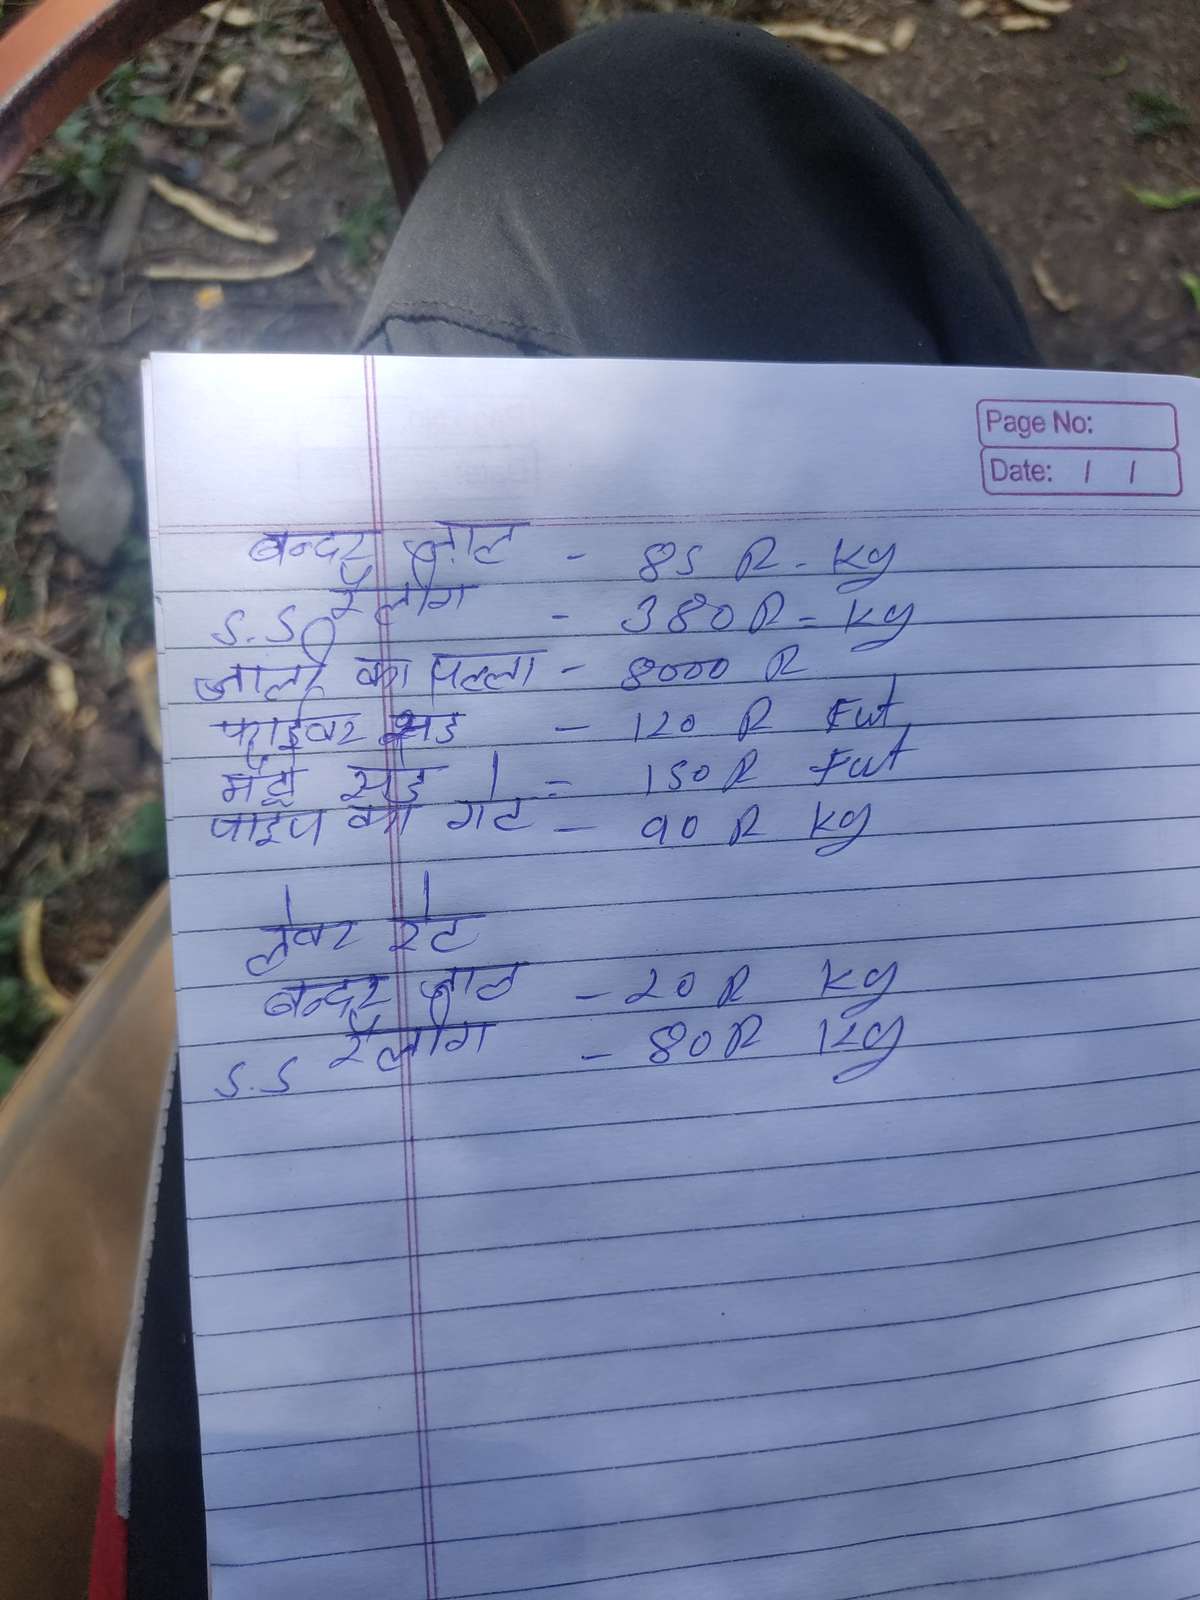 Page No:
Date: / /
बन्दर जाल - 85 R - Kg
S.S रैलींग - 380 R - Kg
जाली का पल्ला - 8000 R
फाईवर सेड - 120 R Fut
मैट्रो सेड = 150 R Fut
पाईप का गेट - 90 R Kg
लेवर रेट
बन्दर जाल - 20 R Kg
S.S रैलींग - 80 R Kg